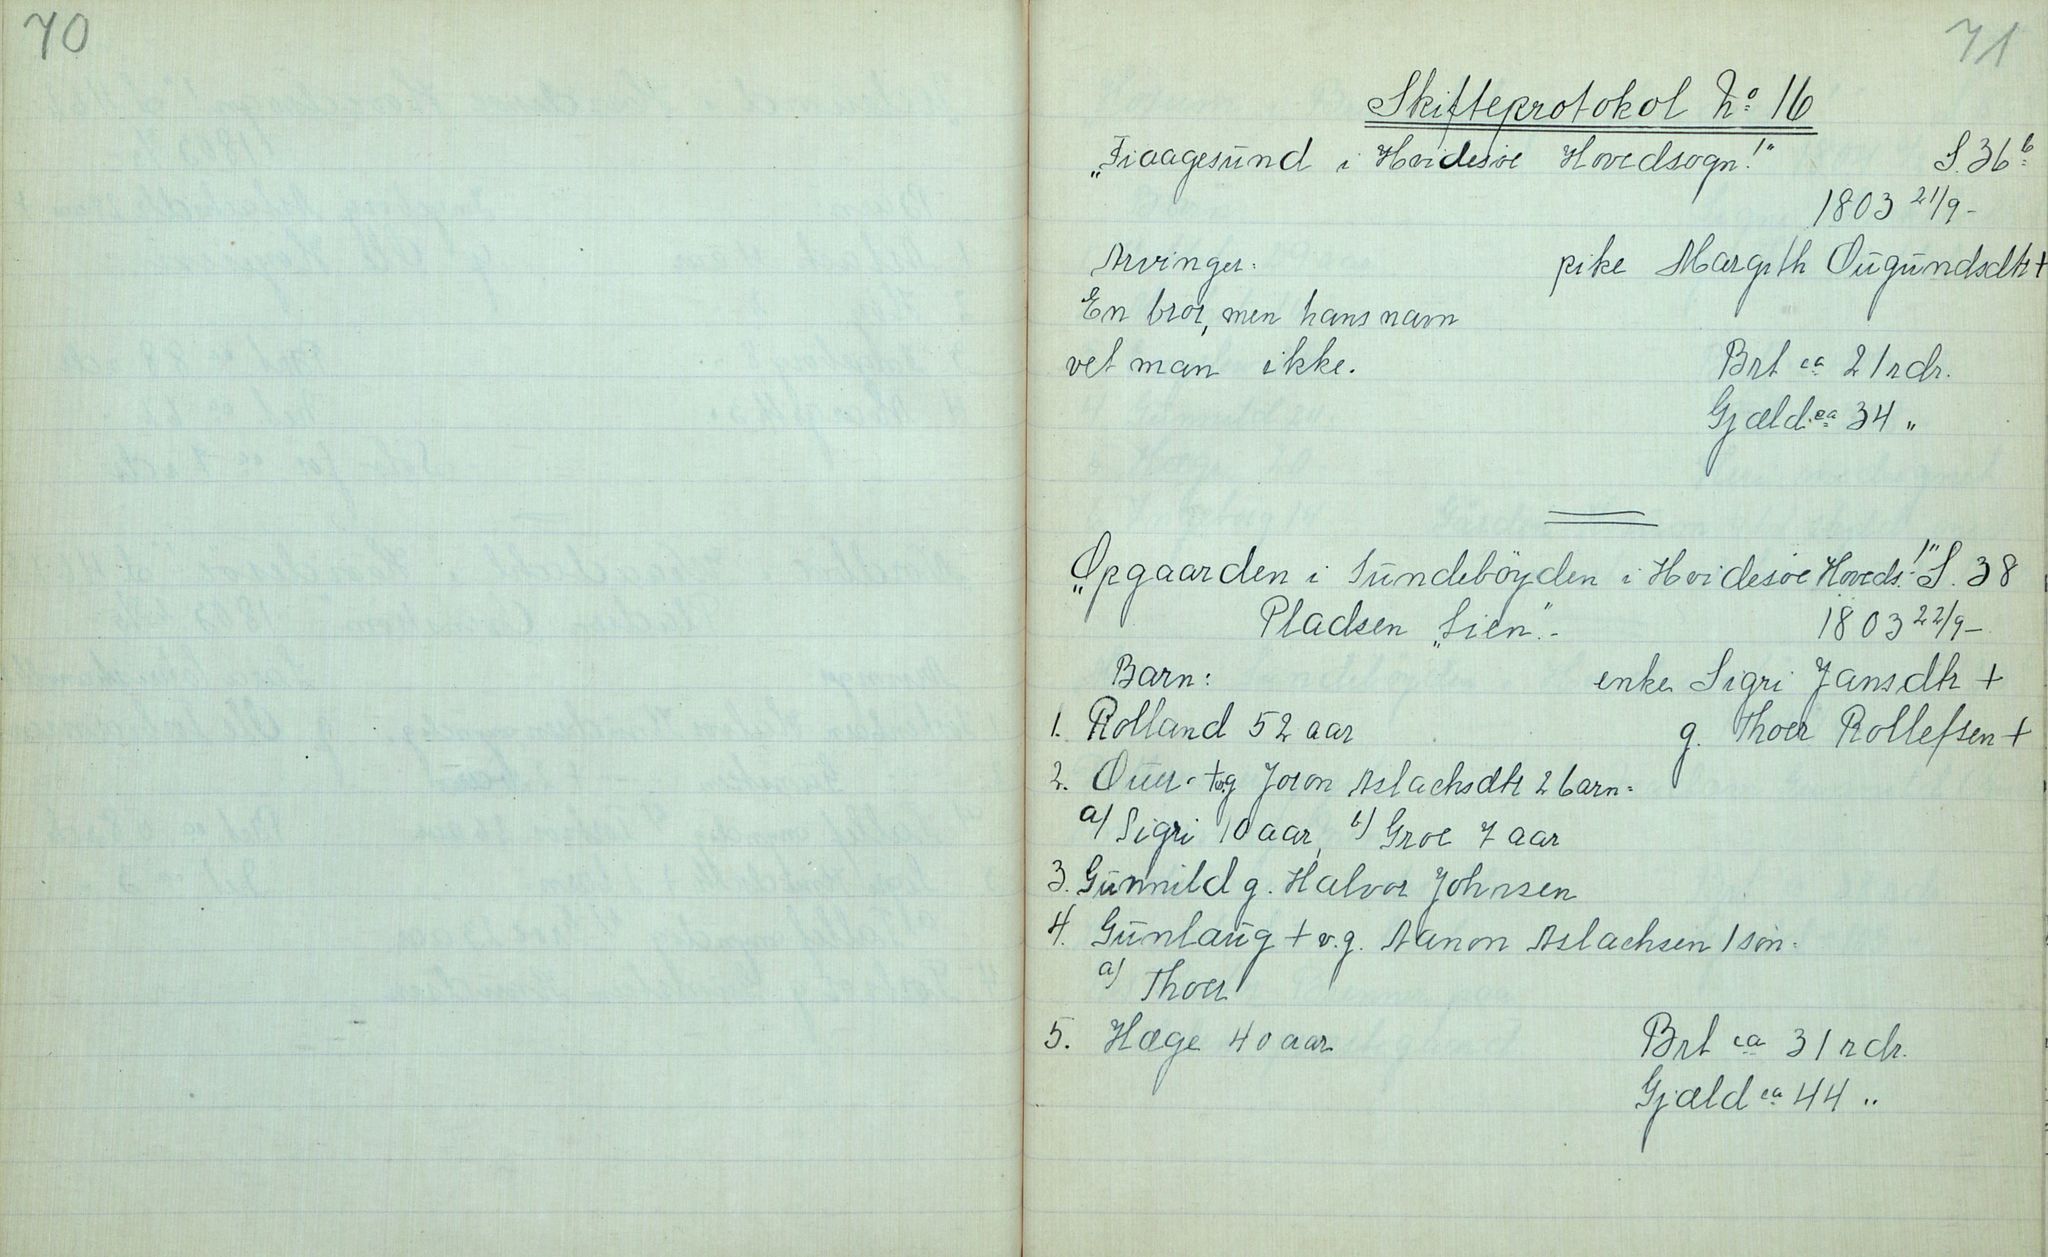 70
71
Skifteprotokol No 16
"Fiaagesund i Hvidesøe Hovedsogn!" S. 36b
1803 21/9-
Arvinger: pike Margith Ougundsdtr +
En bror, men hans navn
vet man ikke. Brt ca 21 rdr.
Gjæld ca 34 "
"Opgaarden i Sundebøyden i Hvidesøe Hoveds.!" S. 38
Pladsen "Lien".- 1803 22/9-
Barn: enke Sigri Jansdtr +
1. Rolland 52 aar g. Thoer Rollefsen +
2. Ouer + g Joron Aslachsdtr 2 barn:
a) Sigri 10 aar, b) Groe 7 aar
3. Gunnild g. Halvor Johnsen
4. Gunlaug + v. g. Aanon Aslachsen 1 søn:
a) Thoer
5. Hæge 40 aar Brt ca 31 rdr.
Gjæld ca 44 "